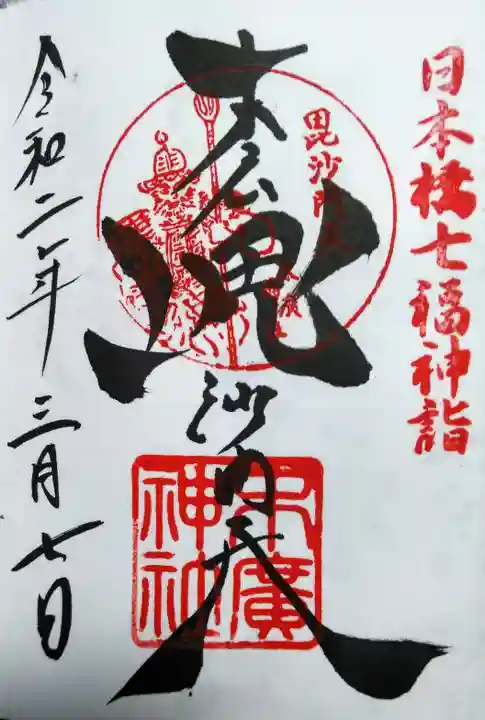 日本橋七福神詣
毘沙門
末広
毘沙門天
末廣
神社
令和二年三月七日